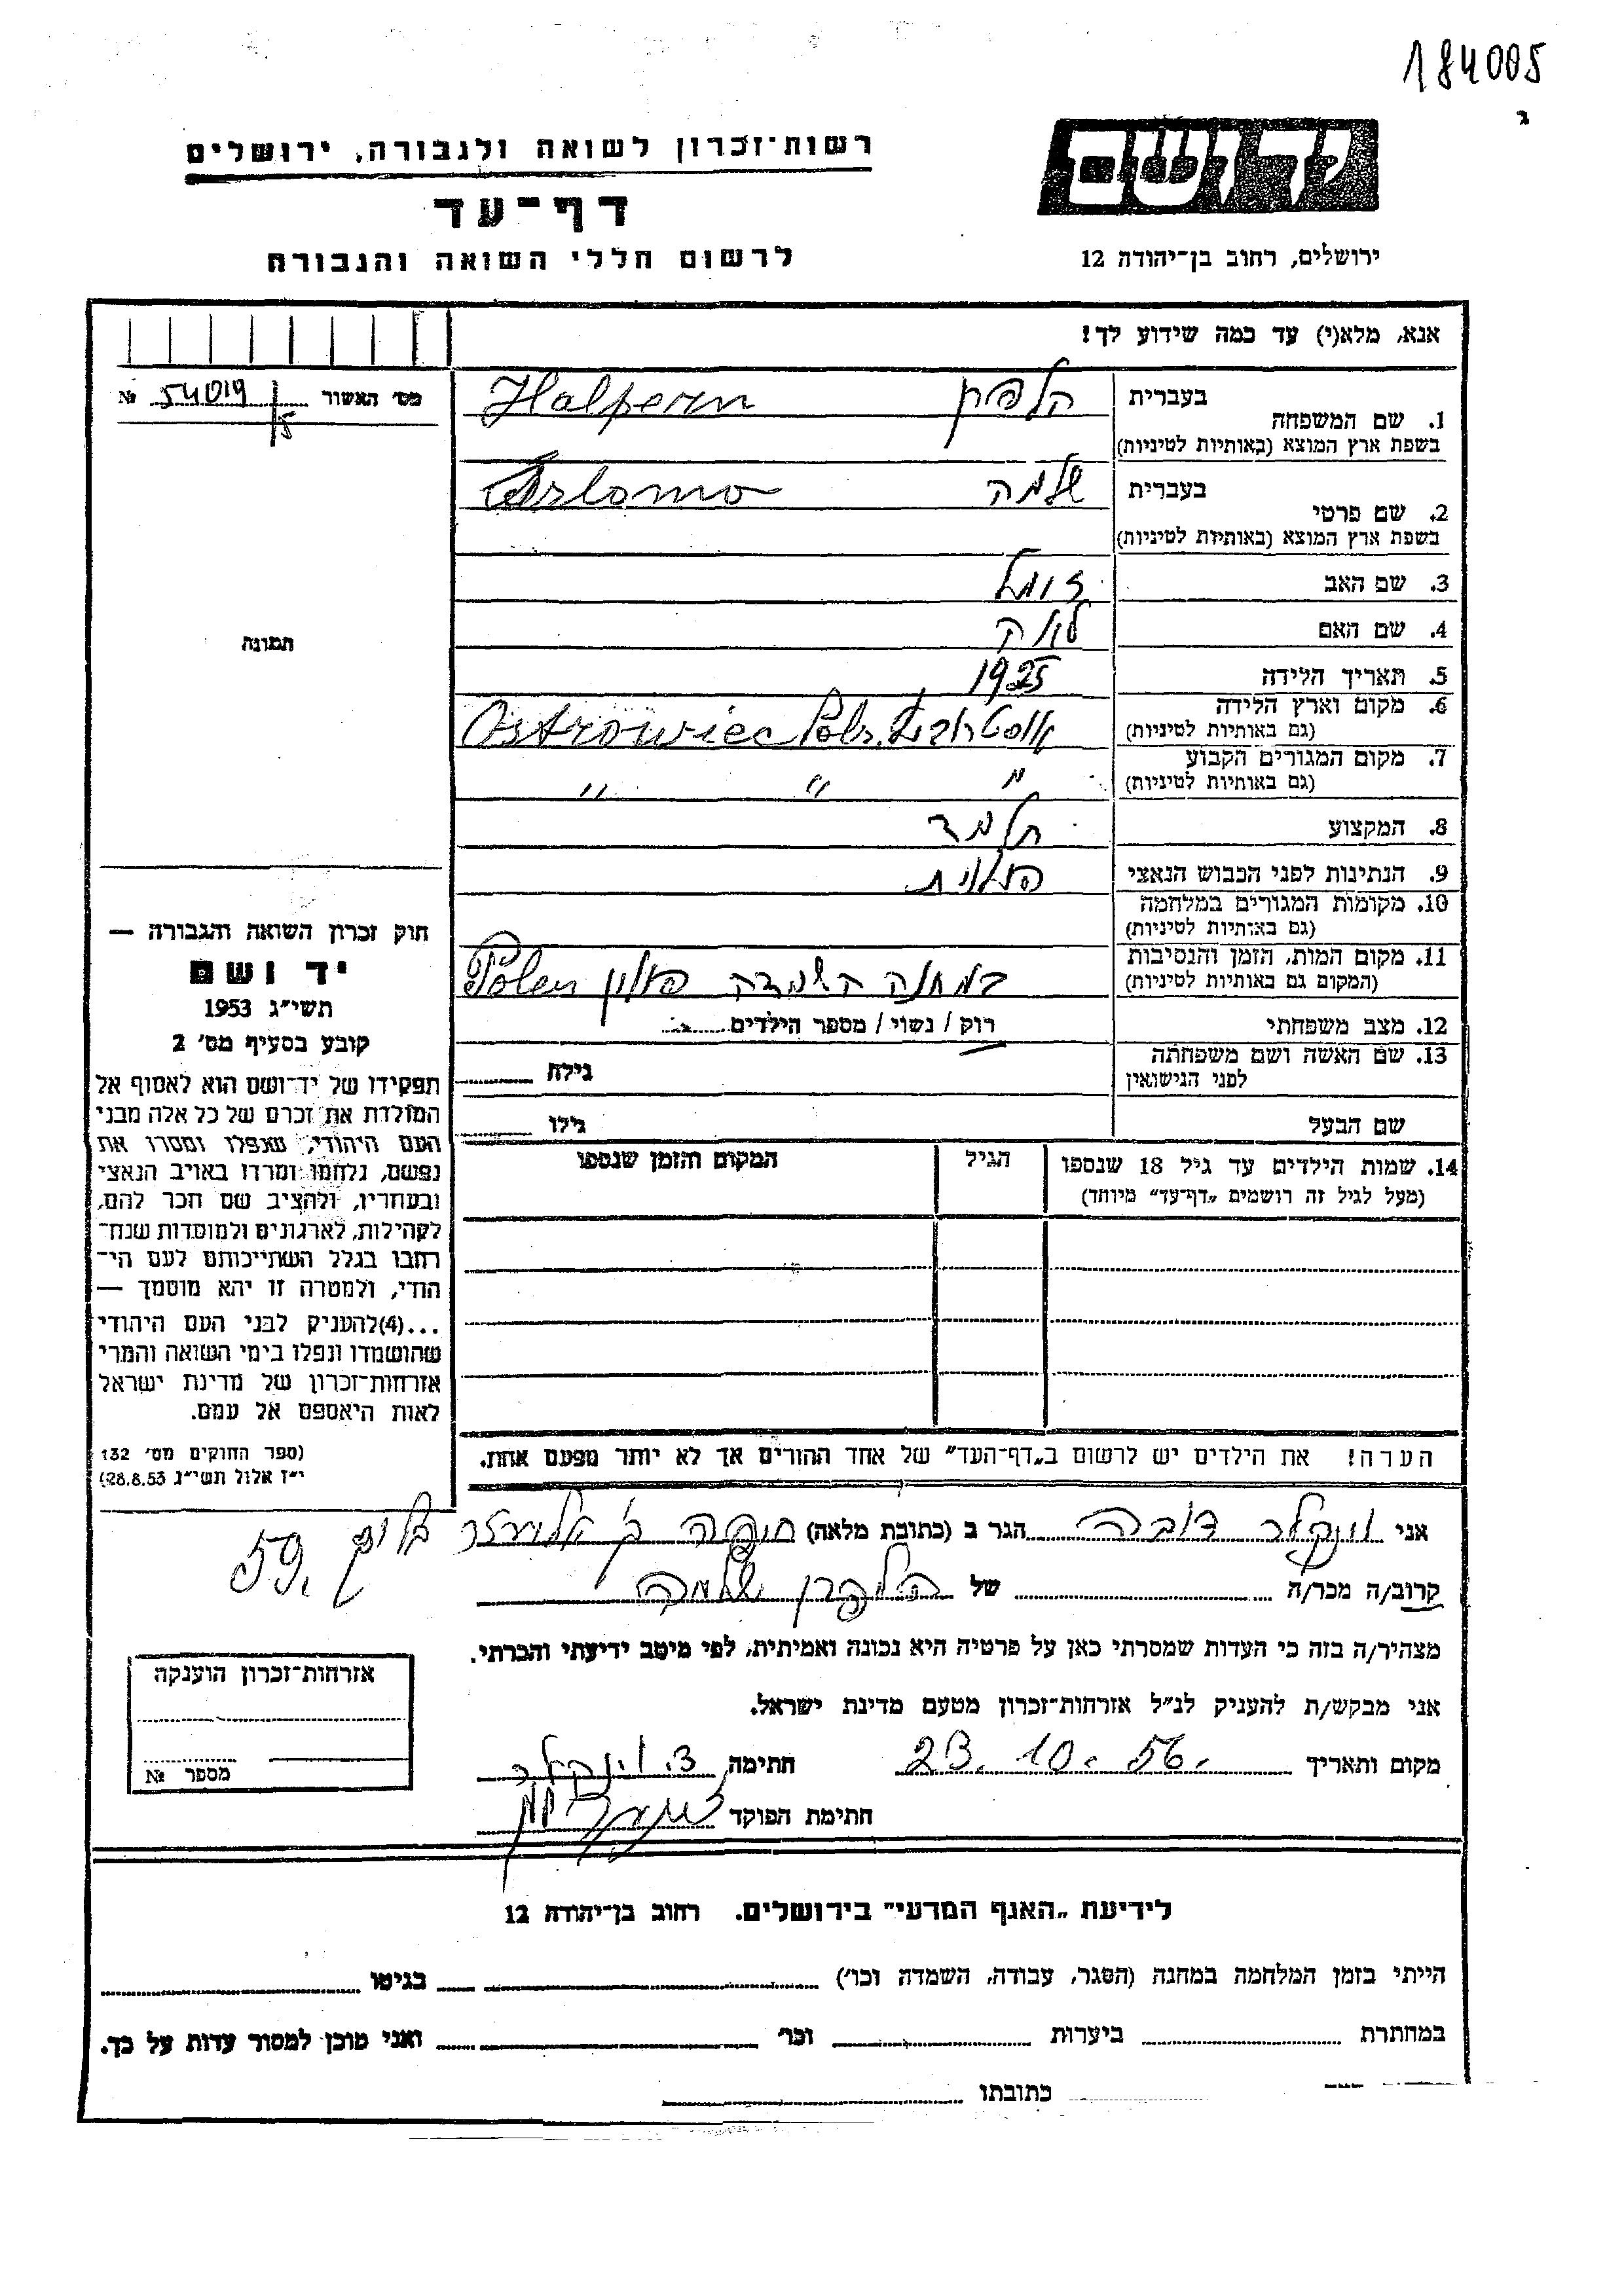 184005
ג
יד ושם
רשות־זכרון לשואה ולגבורה, ירושלים
דף־עד
ירושלים, רחוב בן־יהודה 12
לרשום חללי השואה והגבורה
אנא, מלא(י) עד כמה שידוע לך!
מס׳ האשור 54019/5 №
1. שם המשפחה בעברית הלפרן Halpern
בשפת ארץ המוצא (באותיות לטיניות)
2. שם פרטי בעברית שלמה
בשפת ארץ המוצא (באותיות לטיניות)
3. שם האב
4. שם האם
תמונה
5. תאריך הלידה 1925
6. מקום וארץ הלידה Ostrowiec
(גם באותיות לטיניות)
7. מקום המגורים הקבוע " " "
(גם באותיות לטיניות)
8. המקצוע תלמיד
9. הנתינות לפני הכבוש הנאצי פולנית
10. מקומות המגורים במלחמה
(גם באותיות לטיניות)
11. מקום המות, הזמן והנסיבות במחנה השמדה פולין Polen
(המקום גם באותיות לטיניות)
12. מצב משפחתי רוק / נשוי / מספר הילדים
13. שם האשה ושם משפחתה
לפני הנישואין גילה
שם הבעל גילו
14. שמות הילדים עד גיל 18 שנספו הגיל המקום והזמן שנספו
(מעל לגיל זה רושמים „דף־עד״ מיוחד)
חוק זכרון השואה והגבורה —
יד ושם
תשי״ג 1953
קובע בסעיף מס׳ 2
תפקידו של יד־ושם הוא לאסוף אל
המולדת את זכרם של כל אלה מבני
העם היהודי, שנפלו ומסרו את
נפשם, נלחמו ומרדו באויב הנאצי
ובעוזריו, ולהציב שם וזכר להם,
לקהילות, לארגונים ולמוסדות שנח־
רבו בגלל השתייכותם לעם הי־
הודי, ולמטרה זו יהא מוסמך —
...(4) להעניק לבני העם היהודי
שהושמדו ונפלו בימי השואה והמרי
אזרחות־זכרון של מדינת ישראל
לאות היאספם אל עמם.
(ספר החוקים מס׳ 132
י״ז אלול תשי״ג 28.8.53)
הערה! את הילדים יש לרשום ב„דף־העד״ של אחד ההורים אך לא יותר מפעם אחת.
אני וינקלר דובה הגר ב (כתובת מלאה) חיפה 59
קרוב/ה מכר/ה של הלפרן שלמה
מצהיר/ה בזה כי העדות שמסרתי כאן על פרטיה היא נכונה ואמיתית, לפי מיטב ידיעתי והכרתי.
אני מבקש/ת להעניק לנ״ל אזרחות־זכרון מטעם מדינת ישראל.
מקום ותאריך 23.10.56. חתימה ד. וינקלר
חתימת הפוקד
אזרחות־זכרון הוענקה
מספר №
לידיעת „האגף המדעי״ בירושלים. רחוב בן־יהודה 12
הייתי בזמן המלחמה במחנה (הסגר, עבודה, השמדה וכו׳) בגיטו
במחתרת ביערות וכו׳ ואני מוכן למסור עדות על כך.
כתובתו